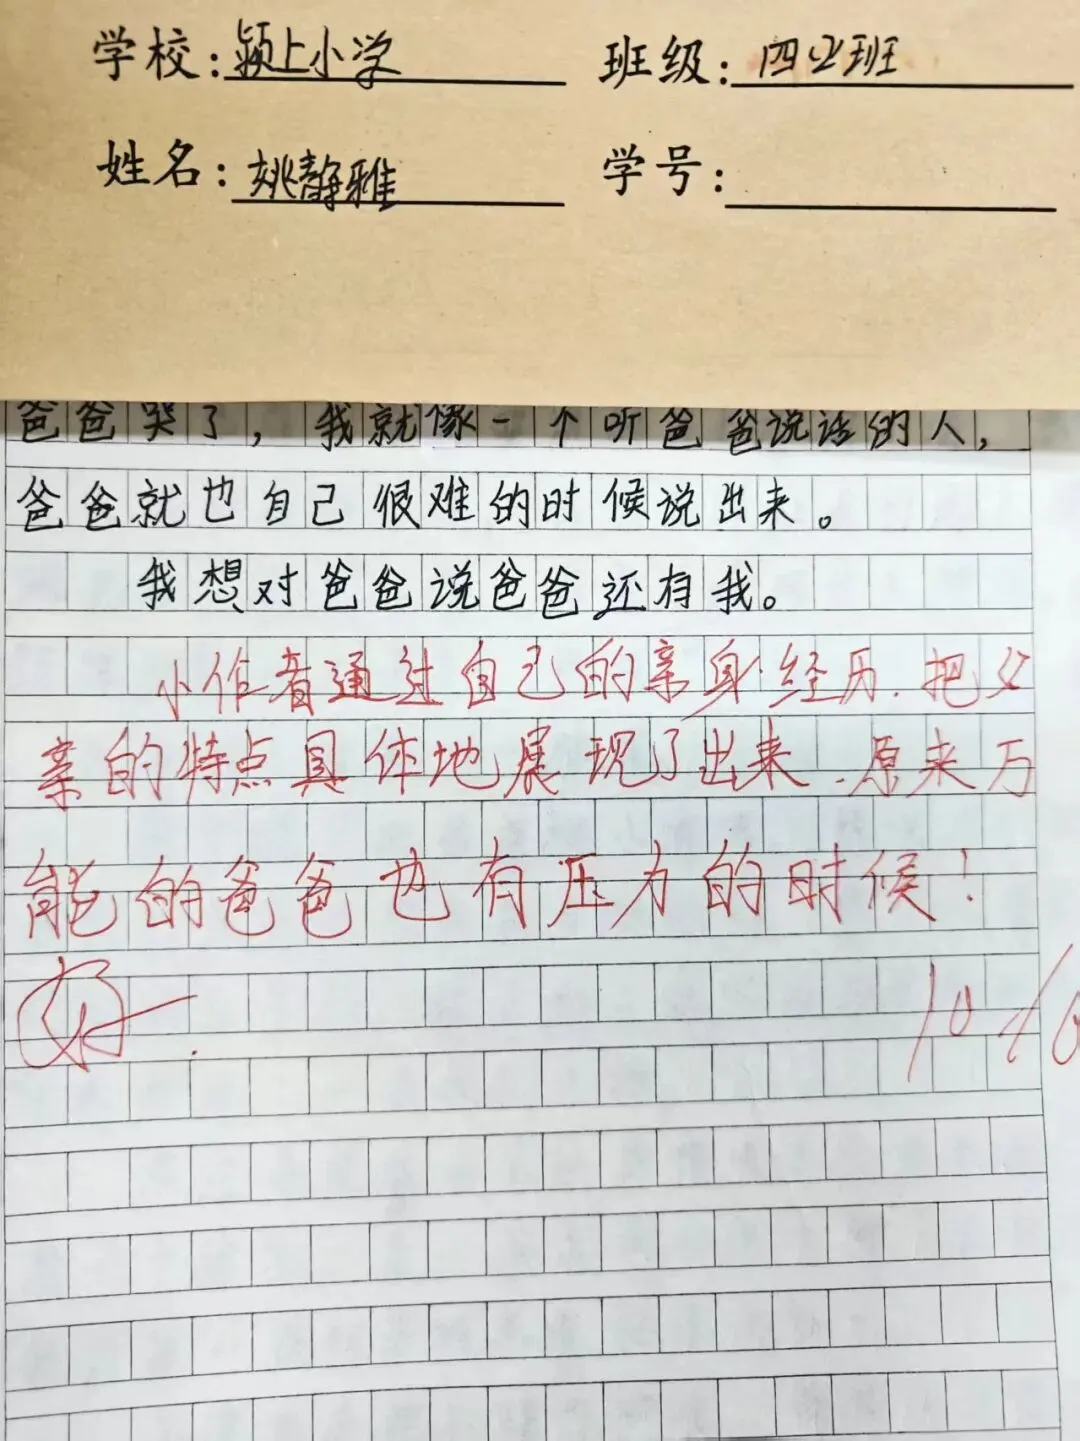 学校：颍上小学 班级：四(2)班
姓名：姚静雅 学号：
爸爸哭了，我就像一个听爸爸说话的人，
爸爸就也自己很难的时候说出来。
我想对爸爸说爸爸还有我。
小作者通过自己的亲身经历，把父
亲的特点具体地展现了出来，原来万
能的爸爸也有压力的时候！
好 10/6